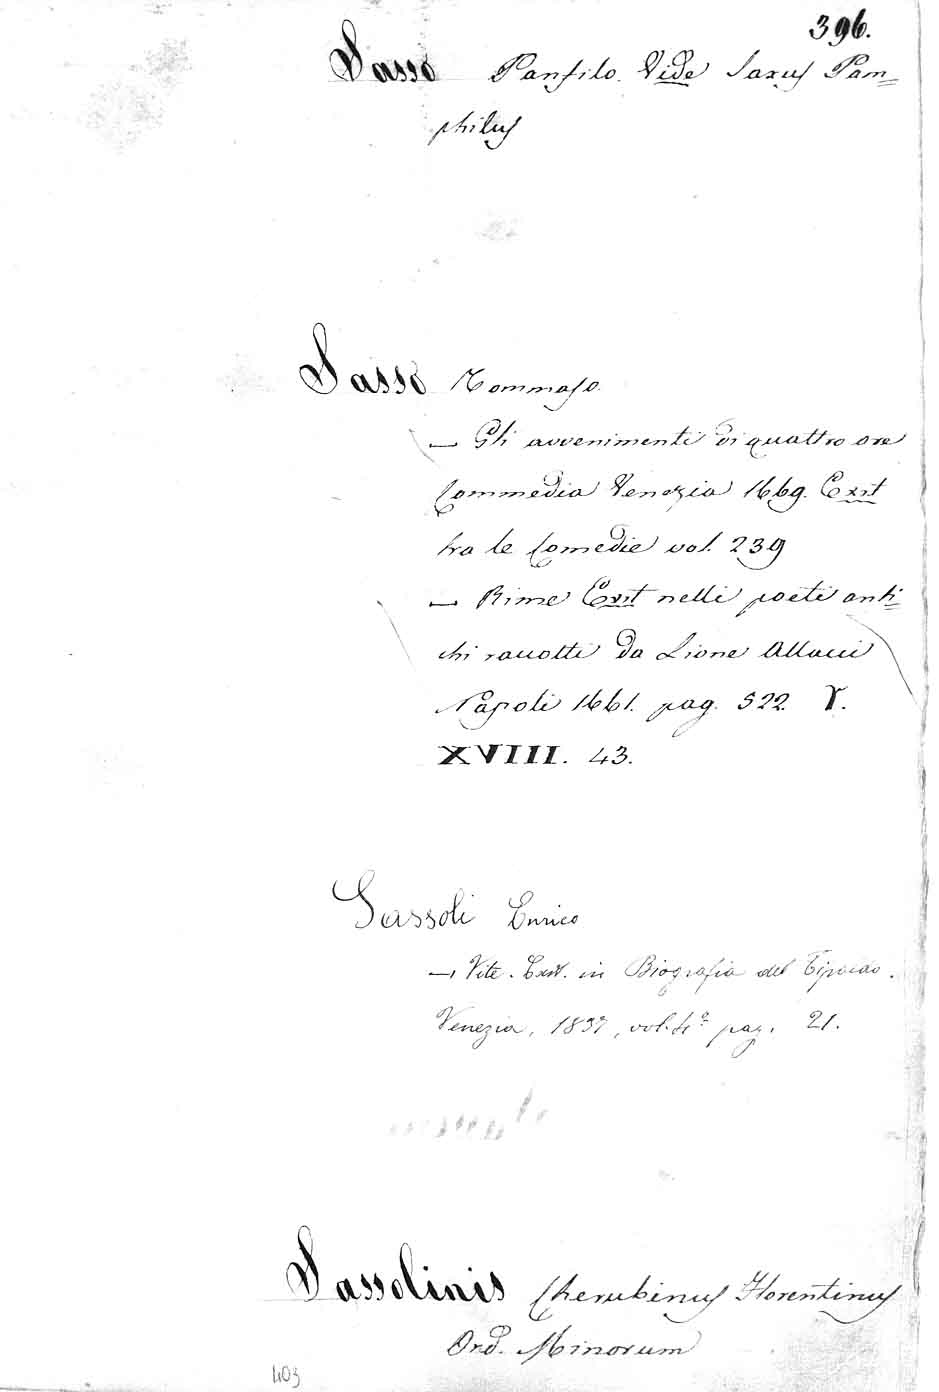 396.
Sasso Panfilo. Vide Saxus Pam=
philus
Sasso Tommaso
— Gli avvenimenti di quattro ore
Commedia Venezia 1669. Exit
tra le Comedie vol. 239
— Rime Exit nelli poeti anti=
chi raccolti da Lione Allacci
Napoli 1661. pag. 522. V.
XVIII. 43.
Sassoli Enrico
— Vite. Exit. in Biografia del Tipaldo.
Venezia, 1837, vol. 4º pag. 21.
Sassolinis Cherubinus Florentinus
Ord. Minorum
403